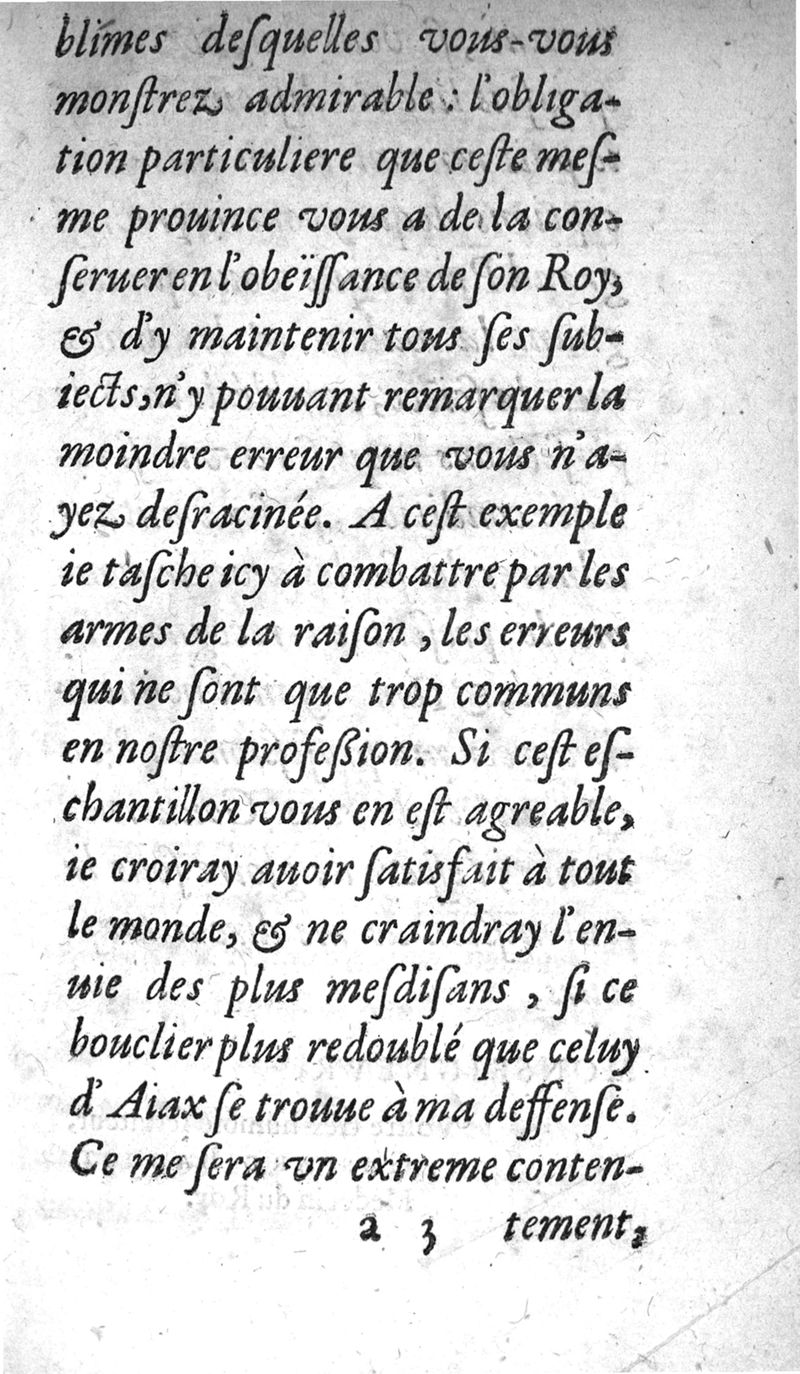 blimes deſquelles vous-vous
monſtrez admirable : l'obliga-
tion particuliere que ceſte meſ-
me prouince vous a de la con-
ſeruer en l'obeïſſance de ſon Roy,
& d'y maintenir tous ſes ſub-
iects, n'y pouuant remarquer la
moindre erreur que vous n'a-
yez deſracinée. A ceſt exemple
ie taſche icy à combattre par les
armes de la raiſon , les erreurs
qui ne ſont que trop communs
en noſtre profeßion. Si ceſt eſ-
chantillon vous en eſt agreable,
ie croiray auoir ſatisfait à tout
le monde, & ne craindray l'en-
uie des plus meſdiſans , ſi ce
bouclier plus redoublé que celuy
d'Aiax ſe trouue à ma deffenſe.
Ce me ſera vn extreme conten-
a 3 tement,